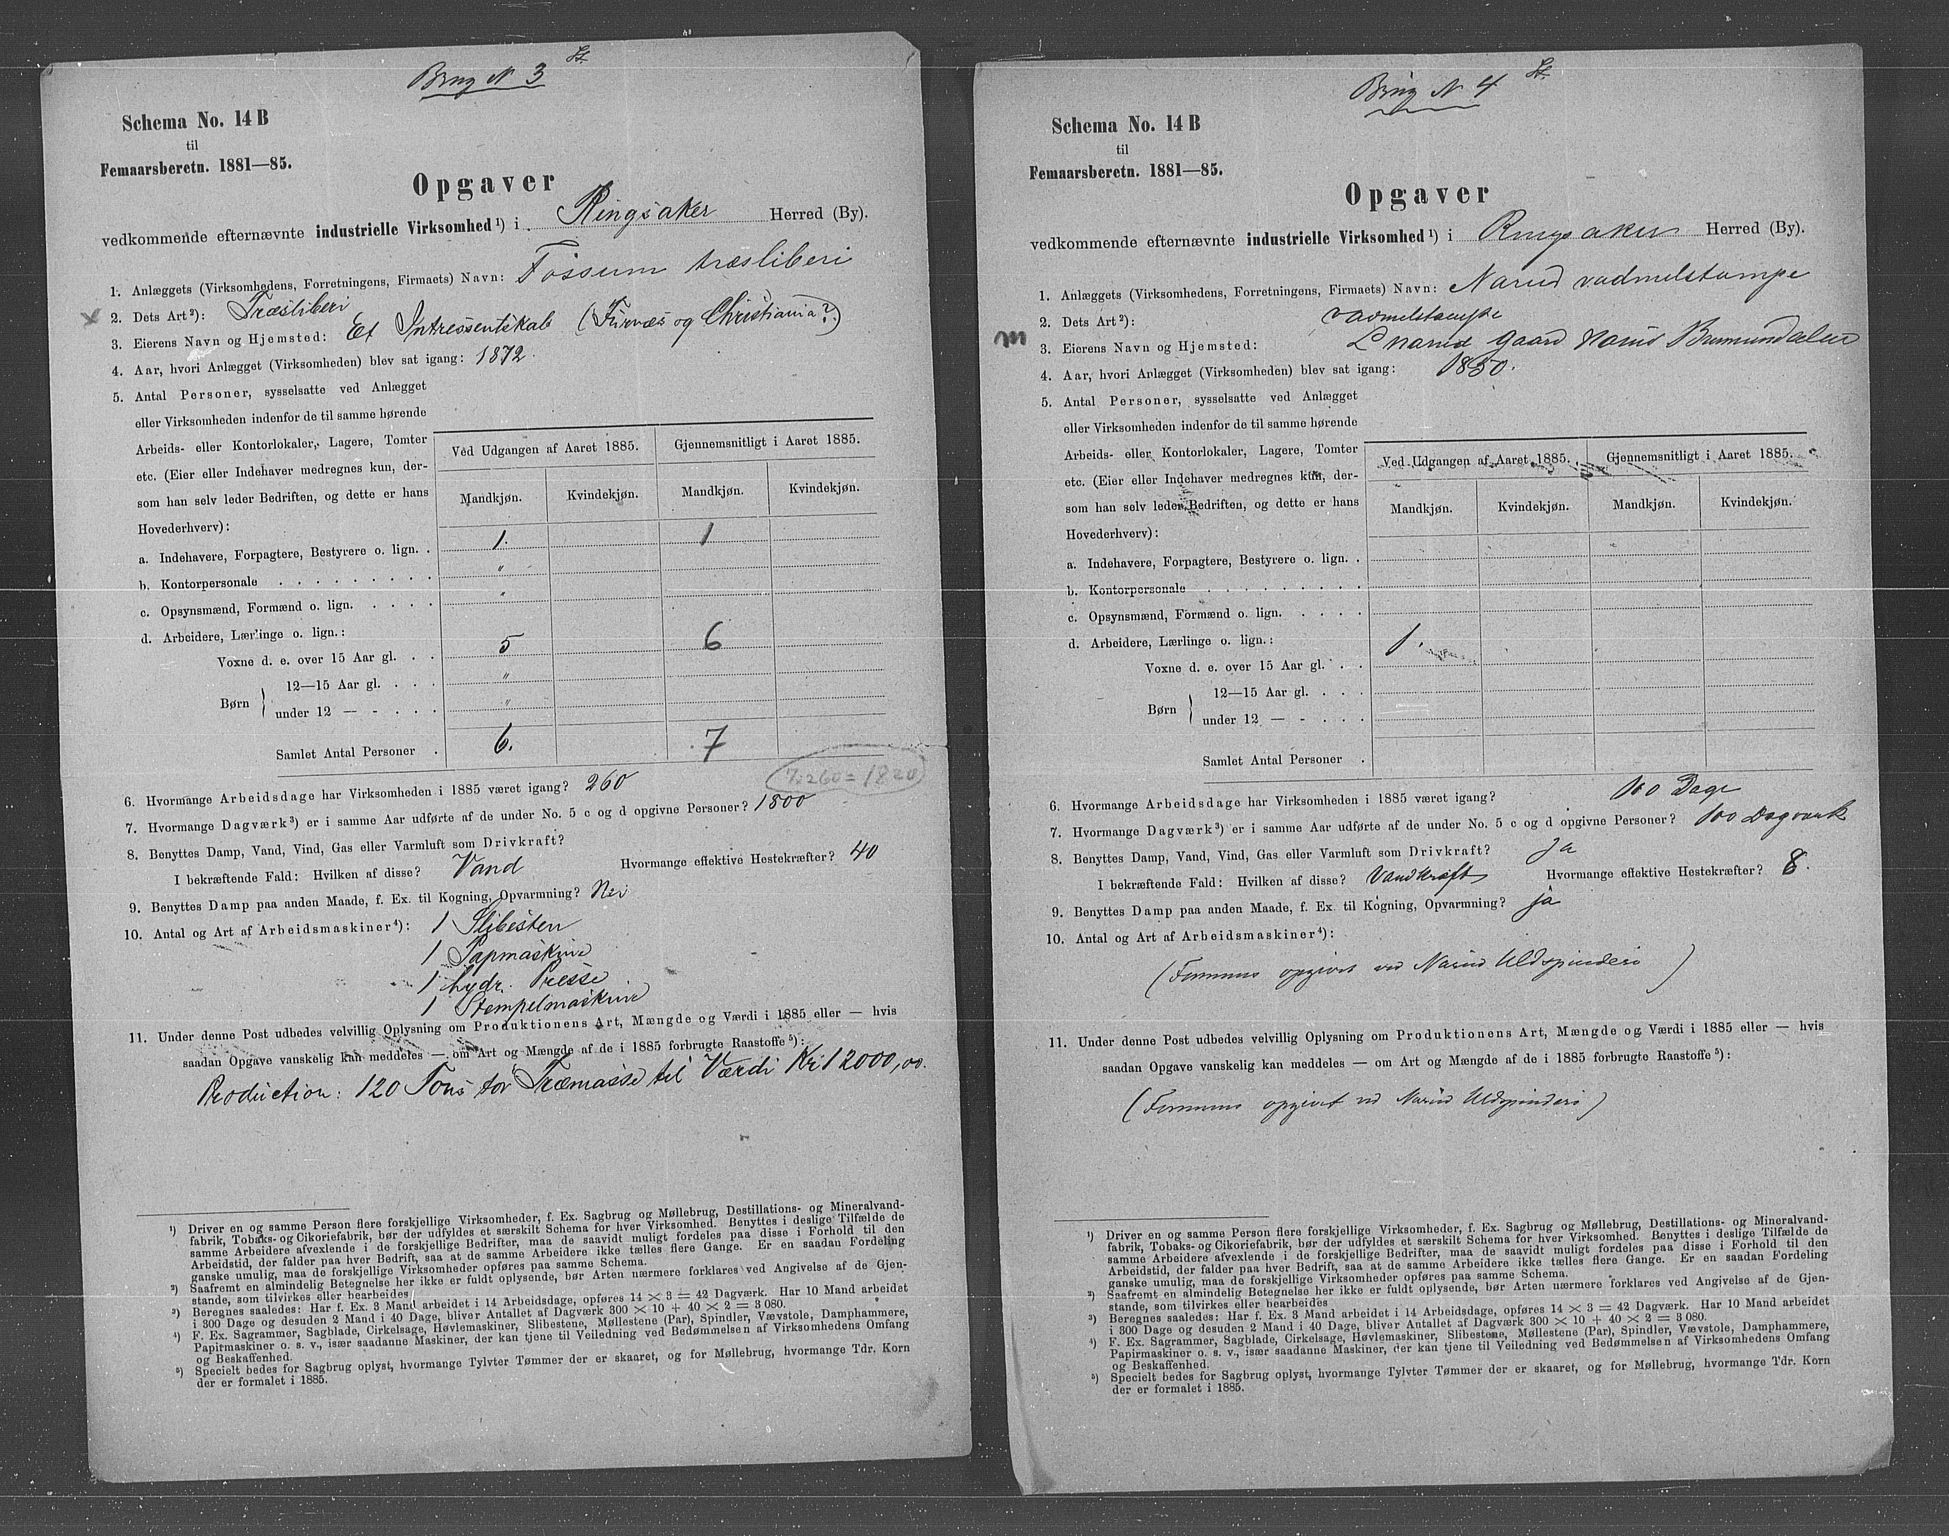 Brug N 3 St.
Schema No. 14 B
til
Femaarsberetn. 1881—85.
Opgaver
vedkommende efternævnte industrielle Virksomhed ¹) i Ringsaker Herred (By).
1. Anlæggets (Virksomhedens, Forretningens, Firmaets) Navn: Fossum træsliberi
2. Dets Art ²): Træsliberi
3. Eierens Navn og Hjemsted: Et Intressentskab (Furnæs og Christiania?)
4. Aar, hvori Anlægget (Virksomheden) blev sat igang: 1872.
5. Antal Personer, sysselsatte ved Anlægget
eller Virksomheden indenfor de til samme hørende
Arbeids- eller Kontorlokaler, Lagere, Tomter
etc. (Eier eller Indehaver medregnes kun, der-
som han selv leder Bedriften, og dette er hans
Hovederhverv):
Ved Udgangen af Aaret 1885. Gjennemsnitligt i Aaret 1885.
Mandkjøn. Kvindekjøn. Mandkjøn. Kvindekjøn.
a. Indehavere, Forpagtere, Bestyrere o. lign. . 1. 1
b. Kontorpersonale . . . . . . . . . "
c. Opsynsmænd, Formænd o. lign. . . . . "
d. Arbeidere, Lærlinge o. lign.:
Voxne d. e. over 15 Aar gl. . . 5 6
Børn { 12—15 Aar gl. . . . "
under 12 — - . . . . "
Samlet Antal Personer . 6. 7
7x260=1820
6. Hvormange Arbeidsdage har Virksomheden i 1885 været igang? 260
7. Hvormange Dagværk ³) er i samme Aar udførte af de under No. 5 c og d opgivne Personer? 1800
8. Benyttes Damp, Vand, Vind, Gas eller Varmluft som Drivkraft?
I bekræftende Fald: Hvilken af disse? Vand Hvormange effektive Hestekræfter? 40
9. Benyttes Damp paa anden Maade, f. Ex. til Kogning, Opvarmning? Nei
10. Antal og Art af Arbeidsmaskiner ⁴): 1 Slibesten
1 Papmaskine
1 hydr. Presse
1 Stempelmaskine
11. Under denne Post udbedes velvillig Oplysning om Produktionens Art, Mængde og Værdi i 1885 eller — hvis
saadan Opgave vanskelig kan meddeles — om Art og Mængde af de i 1885 forbrugte Raastoffe ⁵):
Production: 120 Tons tør Træmasse til Værdi Kr 12000,00.
¹) Driver en og samme Person flere forskjellige Virksomheder, f. Ex. Sagbrug og Møllebrug, Destillations- og Mineralvand-
fabrik, Tobaks- og Cikoriefabrik, bør der udfyldes et særskilt Schema for hver Virksomhed. Benyttes i deslige Tilfælde de
samme Arbeidere afvexlende i de forskjellige Bedrifter, maa de saavidt muligt fordeles paa disse i Forhold til den
Arbeidstid, der falder paa hver Bedrift, saa at de samme Arbeidere ikke tælles flere Gange. Er en saadan Fordeling
ganske umulig, maa de forskjellige Virksomheder opføres paa samme Schema.
²) Saafremt en almindelig Betegnelse her ikke er fuldt oplysende, bør Arten nærmere forklares ved Angivelse af de Gjen-
stande, som tilvirkes eller bearbeides
³) Beregnes saaledes: Har f. Ex. 3 Mand arbeidet i 14 Arbeidsdage, opføres 14 × 3 = 42 Dagværk. Har 10 Mand arbeidet
i 300 Dage og desuden 2 Mand i 40 Dage, bliver Antallet af Dagværk 300 × 10 + 40 × 2 = 3 080.
⁴) F. Ex. Sagrammer, Sagblade, Cirkelsage, Høvlemaskiner, Slibestene, Møllestene (Par), Spindler, Vævstole, Damphammere,
Papirmaskiner o. s. v., især saadanne Maskiner, der kan tjene til Veiledning ved Bedømmelsen af Virksomhedens Omfang
og Beskaffenhed.
⁵) Specielt bedes for Sagbrug oplyst, hvormange Tylvter Tømmer der er skaaret, og for Møllebrug, hvormange Tdr. Korn
der er formalet i 1885.
Brug N 4 St.
Schema No. 14 B
til
Femaarsberetn. 1881—85.
Opgaver
vedkommende efternævnte industrielle Virksomhed ¹) i Ringsaker Herred (By).
1. Anlæggets (Virksomhedens, Forretningens, Firmaets) Navn: Narud vadmelstampe
2. Dets Art ²): vadmelstampe
3. Eierens Navn og Hjemsted: L Narud Gaard Narud Brumunddalen
m
4. Aar, hvori Anlægget (Virksomheden) blev sat igang: 1850.
5. Antal Personer, sysselsatte ved Anlægget
eller Virksomheden indenfor de til samme hørende
Arbeids- eller Kontorlokaler, Lagere, Tomter
etc. (Eier eller Indehaver medregnes kun, der-
som han selv leder Bedriften, og dette er hans
Hovederhverv):
Ved Udgangen af Aaret 1885. Gjennemsnitligt i Aaret 1885.
Mandkjøn. Kvindekjøn. Mandkjøn. Kvindekjøn.
a. Indehavere, Forpagtere, Bestyrere o. lign. .
b. Kontorpersonale . . . . . . . . .
c. Opsynsmænd, Formænd o. lign. . . . .
d. Arbeidere, Lærlinge o. lign.: 1.
Voxne d. e. over 15 Aar gl. . .
Børn { 12—15 Aar gl. . . .
under 12 — - . . . .
Samlet Antal Personer .
6. Hvormange Arbeidsdage har Virksomheden i 1885 været igang? 100 Dage
7. Hvormange Dagværk ³) er i samme Aar udførte af de under No. 5 c og d opgivne Personer? 100 Dagværk
8. Benyttes Damp, Vand, Vind, Gas eller Varmluft som Drivkraft? ja
I bekræftende Fald: Hvilken af disse? Vandkraft Hvormange effektive Hestekræfter? 8.
9. Benyttes Damp paa anden Maade, f. Ex. til Kogning, Opvarmning? ja
10. Antal og Art af Arbeidsmaskiner ⁴):
( opgivet ved Narud Uldspinderi )
11. Under denne Post udbedes velvillig Oplysning om Produktionens Art, Mængde og Værdi i 1885 eller — hvis
saadan Opgave vanskelig kan meddeles — om Art og Mængde af de i 1885 forbrugte Raastoffe ⁵):
( opgivet ved Narud Uldspinderi )
¹) Driver en og samme Person flere forskjellige Virksomheder, f. Ex. Sagbrug og Møllebrug, Destillations- og Mineralvand-
fabrik, Tobaks- og Cikoriefabrik, bør der udfyldes et særskilt Schema for hver Virksomhed. Benyttes i deslige Tilfælde de
samme Arbeidere afvexlende i de forskjellige Bedrifter, maa de saavidt muligt fordeles paa disse i Forhold til den
Arbeidstid, der falder paa hver Bedrift, saa at de samme Arbeidere ikke tælles flere Gange. Er en saadan Fordeling
ganske umulig, maa de forskjellige Virksomheder opføres paa samme Schema.
²) Saafremt en almindelig Betegnelse her ikke er fuldt oplysende, bør Arten nærmere forklares ved Angivelse af de Gjen-
stande, som tilvirkes eller bearbeides
³) Beregnes saaledes: Har f. Ex. 3 Mand arbeidet i 14 Arbeidsdage, opføres 14 × 3 = 42 Dagværk. Har 10 Mand arbeidet
i 300 Dage og desuden 2 Mand i 40 Dage, bliver Antallet af Dagværk 300 × 10 + 40 × 2 = 3 080.
⁴) F. Ex. Sagrammer, Sagblade, Cirkelsage, Høvlemaskiner, Slibestene, Møllestene (Par), Spindler, Vævstole, Damphammere,
Papirmaskiner o. s. v., især saadanne Maskiner, der kan tjene til Veiledning ved Bedømmelsen af Virksomhedens Omfang
og Beskaffenhed.
⁵) Specielt bedes for Sagbrug oplyst, hvormange Tylvter Tømmer der er skaaret, og for Møllebrug, hvormange Tdr. Korn
der er formalet i 1885.